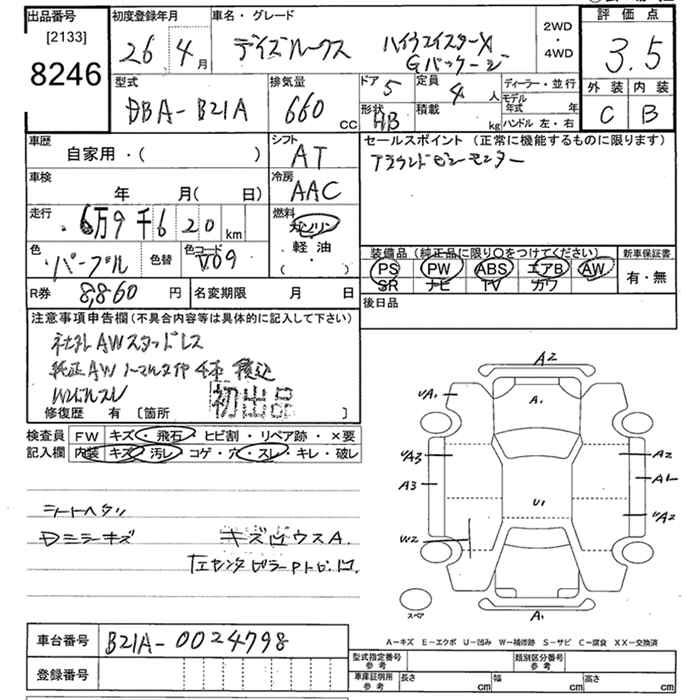 出品番号 初度登録年月 車名・グレード 2WD・4WD 評価点
[2133] 8246 26年 4月 デイズルークス ハイウェイスターX Gパッケージ 3.5
型式 排気量 ドア 5 定員 4人 ディーラー・並行 外装 内装
DBA-B21A 660 CC 形状 HB 積載 kg モデル年式 年 ハンドル 左・右 C B
車歴 シフト セールスポイント(正常に機能するものに限ります)
自家用・( ) AT アラウンドビューモニター
車検 年 月( 日) 冷房 AAC
走行 6万9千620km 燃料 ガソリン
軽油
・( )
色 パープル 色替 色コード 装備品(純正品に限り○をつけてください) 新車保証書
PS PW ABS エアB AW 有・無
SR ナビ TV カワ
R券 8,860円 名変期限 月 日 後日品
注意事項申告欄(不具合内容等は具体的に記入して下さい)
社外AWスタッドレス
純正AWノーマルタイヤ4本積込
初出品
修復歴 有 [箇所 ]
検査員記入欄 FW キズ・飛石・ヒビ割・リペア跡・×要
内装 キズ・汚レ・コゲ・穴・スレ・キレ・破レ
シートヘタリ
Dミラーキズ
A2
A1
A1
A3
A2
A1
U1
W2
A1
スペア
A-キズ E-エクボ U-凹み W-補修跡 S-サビ C-腐食 XX-交換済
車台番号 B21A-0024798 型式指定番号 参考 類別区分番号 参考
登録番号 車庫証明用 参考 長さ cm 幅 cm 高さ cm